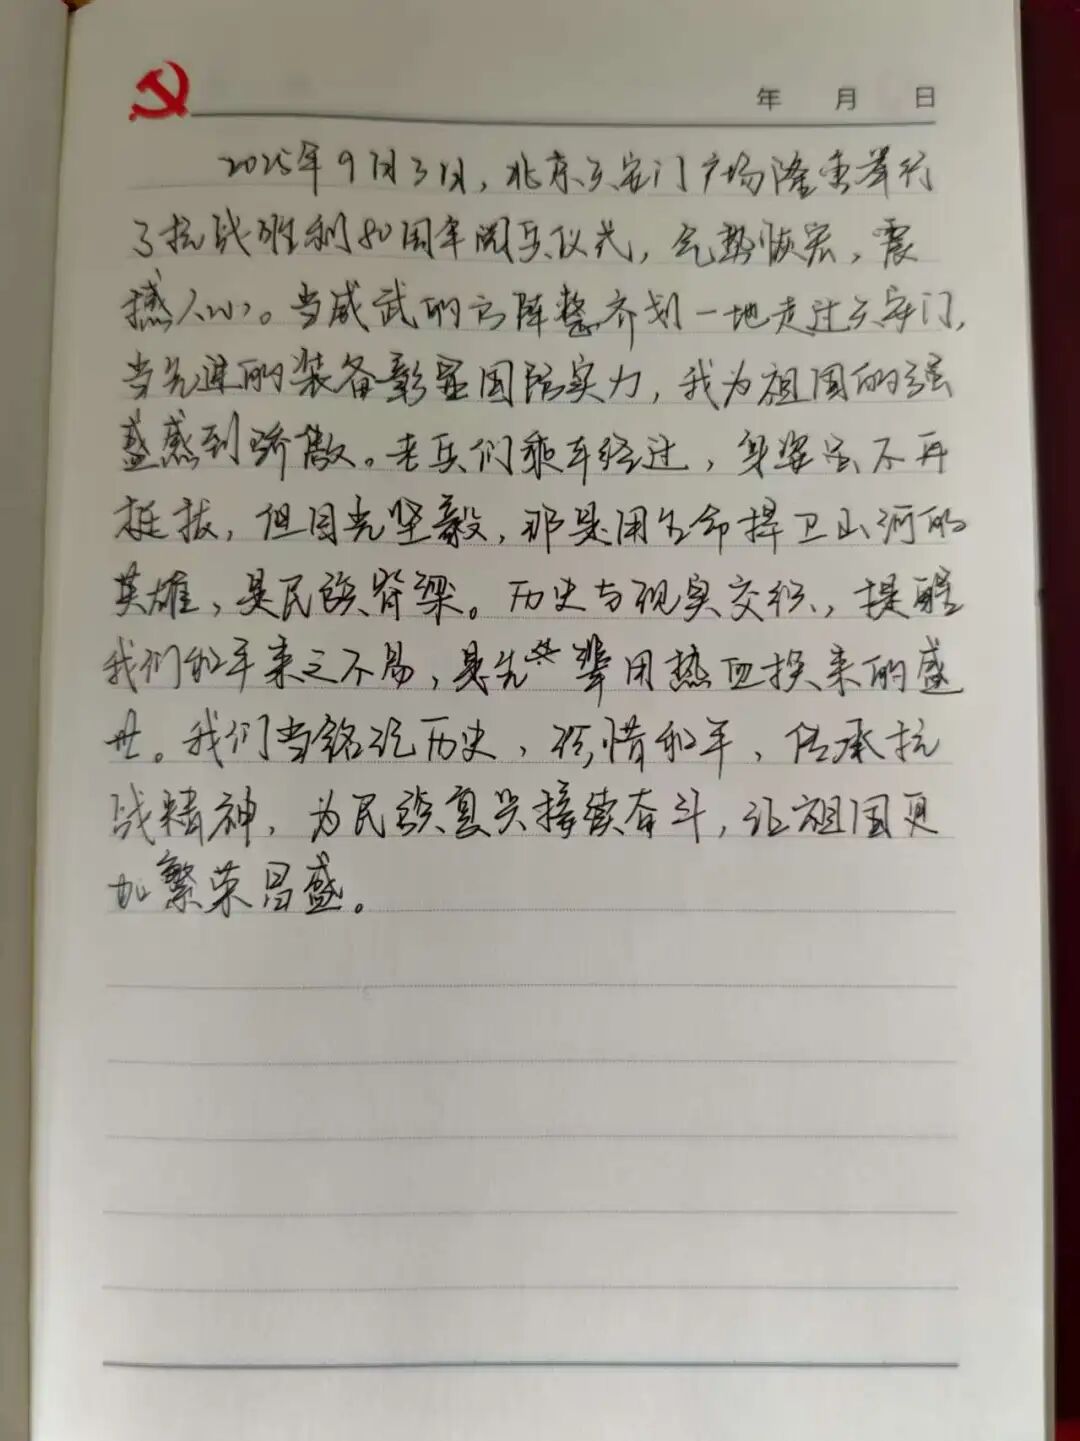 年 月 日
2025年9月3日，北京天安门广场隆重举行
了抗战胜利80周年阅兵仪式，气势恢宏，震
撼人心。当威武的方阵整齐划一地走过天安门，
当先进的装备彰显国防实力，我为祖国的强
盛感到骄傲。老兵们乘车经过，身姿虽不再
挺拔，但目光坚毅，那是用生命捍卫山河的
英雄，是民族脊梁。历史与现实交织，提醒
我们和平来之不易，是先辈用热血换来的盛
世。我们当铭记历史，珍惜和平，传承抗
战精神，为民族复兴接续奋斗，让祖国更
加繁荣昌盛。